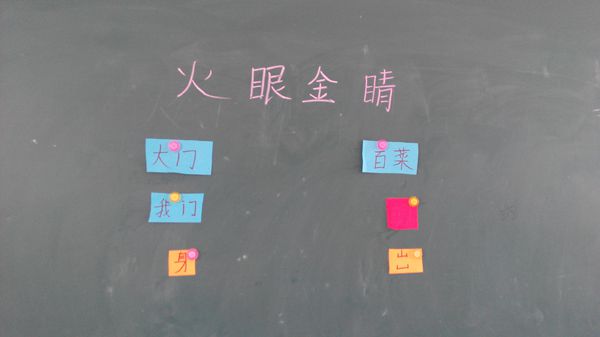 火眼金睛
大门 百菜
我门
身